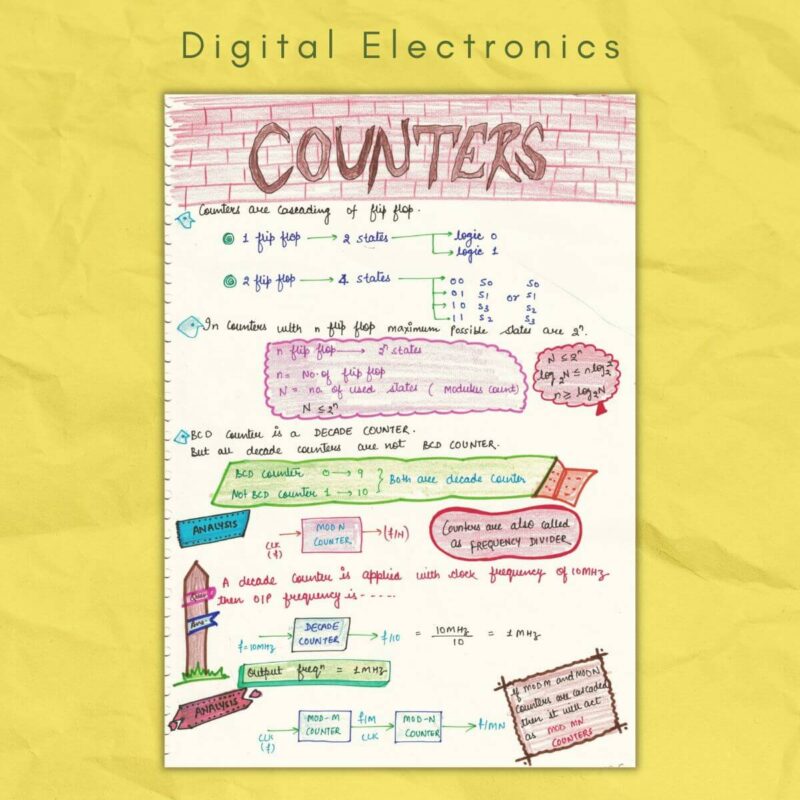 Digital Electronics
COUNTERS
Counters are cascading of flip flop.
1 flip flop → 2 states → logic 0
→ logic 1
2 flip flop → 4 states → 00 S0 S0
01 S1 or S1
10 S3 S2
11 S2 S3
In counters with n flip flop maximum possible states are 2ⁿ.
n flip flop → 2ⁿ states
n = No. of flip flop
N = no. of used states ( modulus count)
N ≤ 2ⁿ
N ≤ 2ⁿ
log₂N ≤ n log₂2
n ≥ log₂N
BCD counter is a DECADE COUNTER.
But all decade counters are not BCD COUNTER.
BCD counter 0 → 9
Not BCD counter 1 → 10 } Both are decade counter
ANALYSIS
CLK
(f)
MOD N
COUNTER
(f/N)
Counters are also called
as FREQUENCY DIVIDER
Ques
Ans-
A decade counter is applied with clock frequency of 10MHz
then O/P frequency is -----
f=10MHz
DECADE
COUNTER
f/10 = 10MHz/10 = 1MHz
Output freqⁿ = 1MHz
ANALYSIS
CLK
(f)
MOD-M
COUNTER
f/M
CLK
MOD-N
COUNTER
f/MN
if MOD M and MOD N
counters are cascaded
then it will act
as MOD MN
COUNTERS